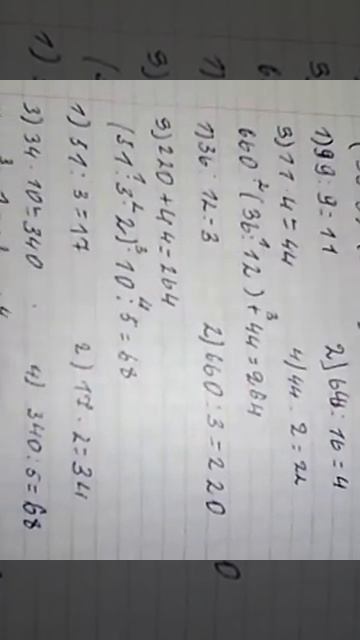 1) 99 : 9 = 11 2) 64 : 16 = 4
3) 11 · 4 = 44 4) 44 · 2 = 22
660 : (36 : 12) + 44 = 264
1) 36 : 12 = 3 2) 660 : 3 = 220
3) 220 + 44 = 264
(51 : 3 · 2) · 10 : 5 = 68
1) 51 : 3 = 17 2) 17 · 2 = 34
3) 34 · 10 = 340 4) 340 : 5 = 68